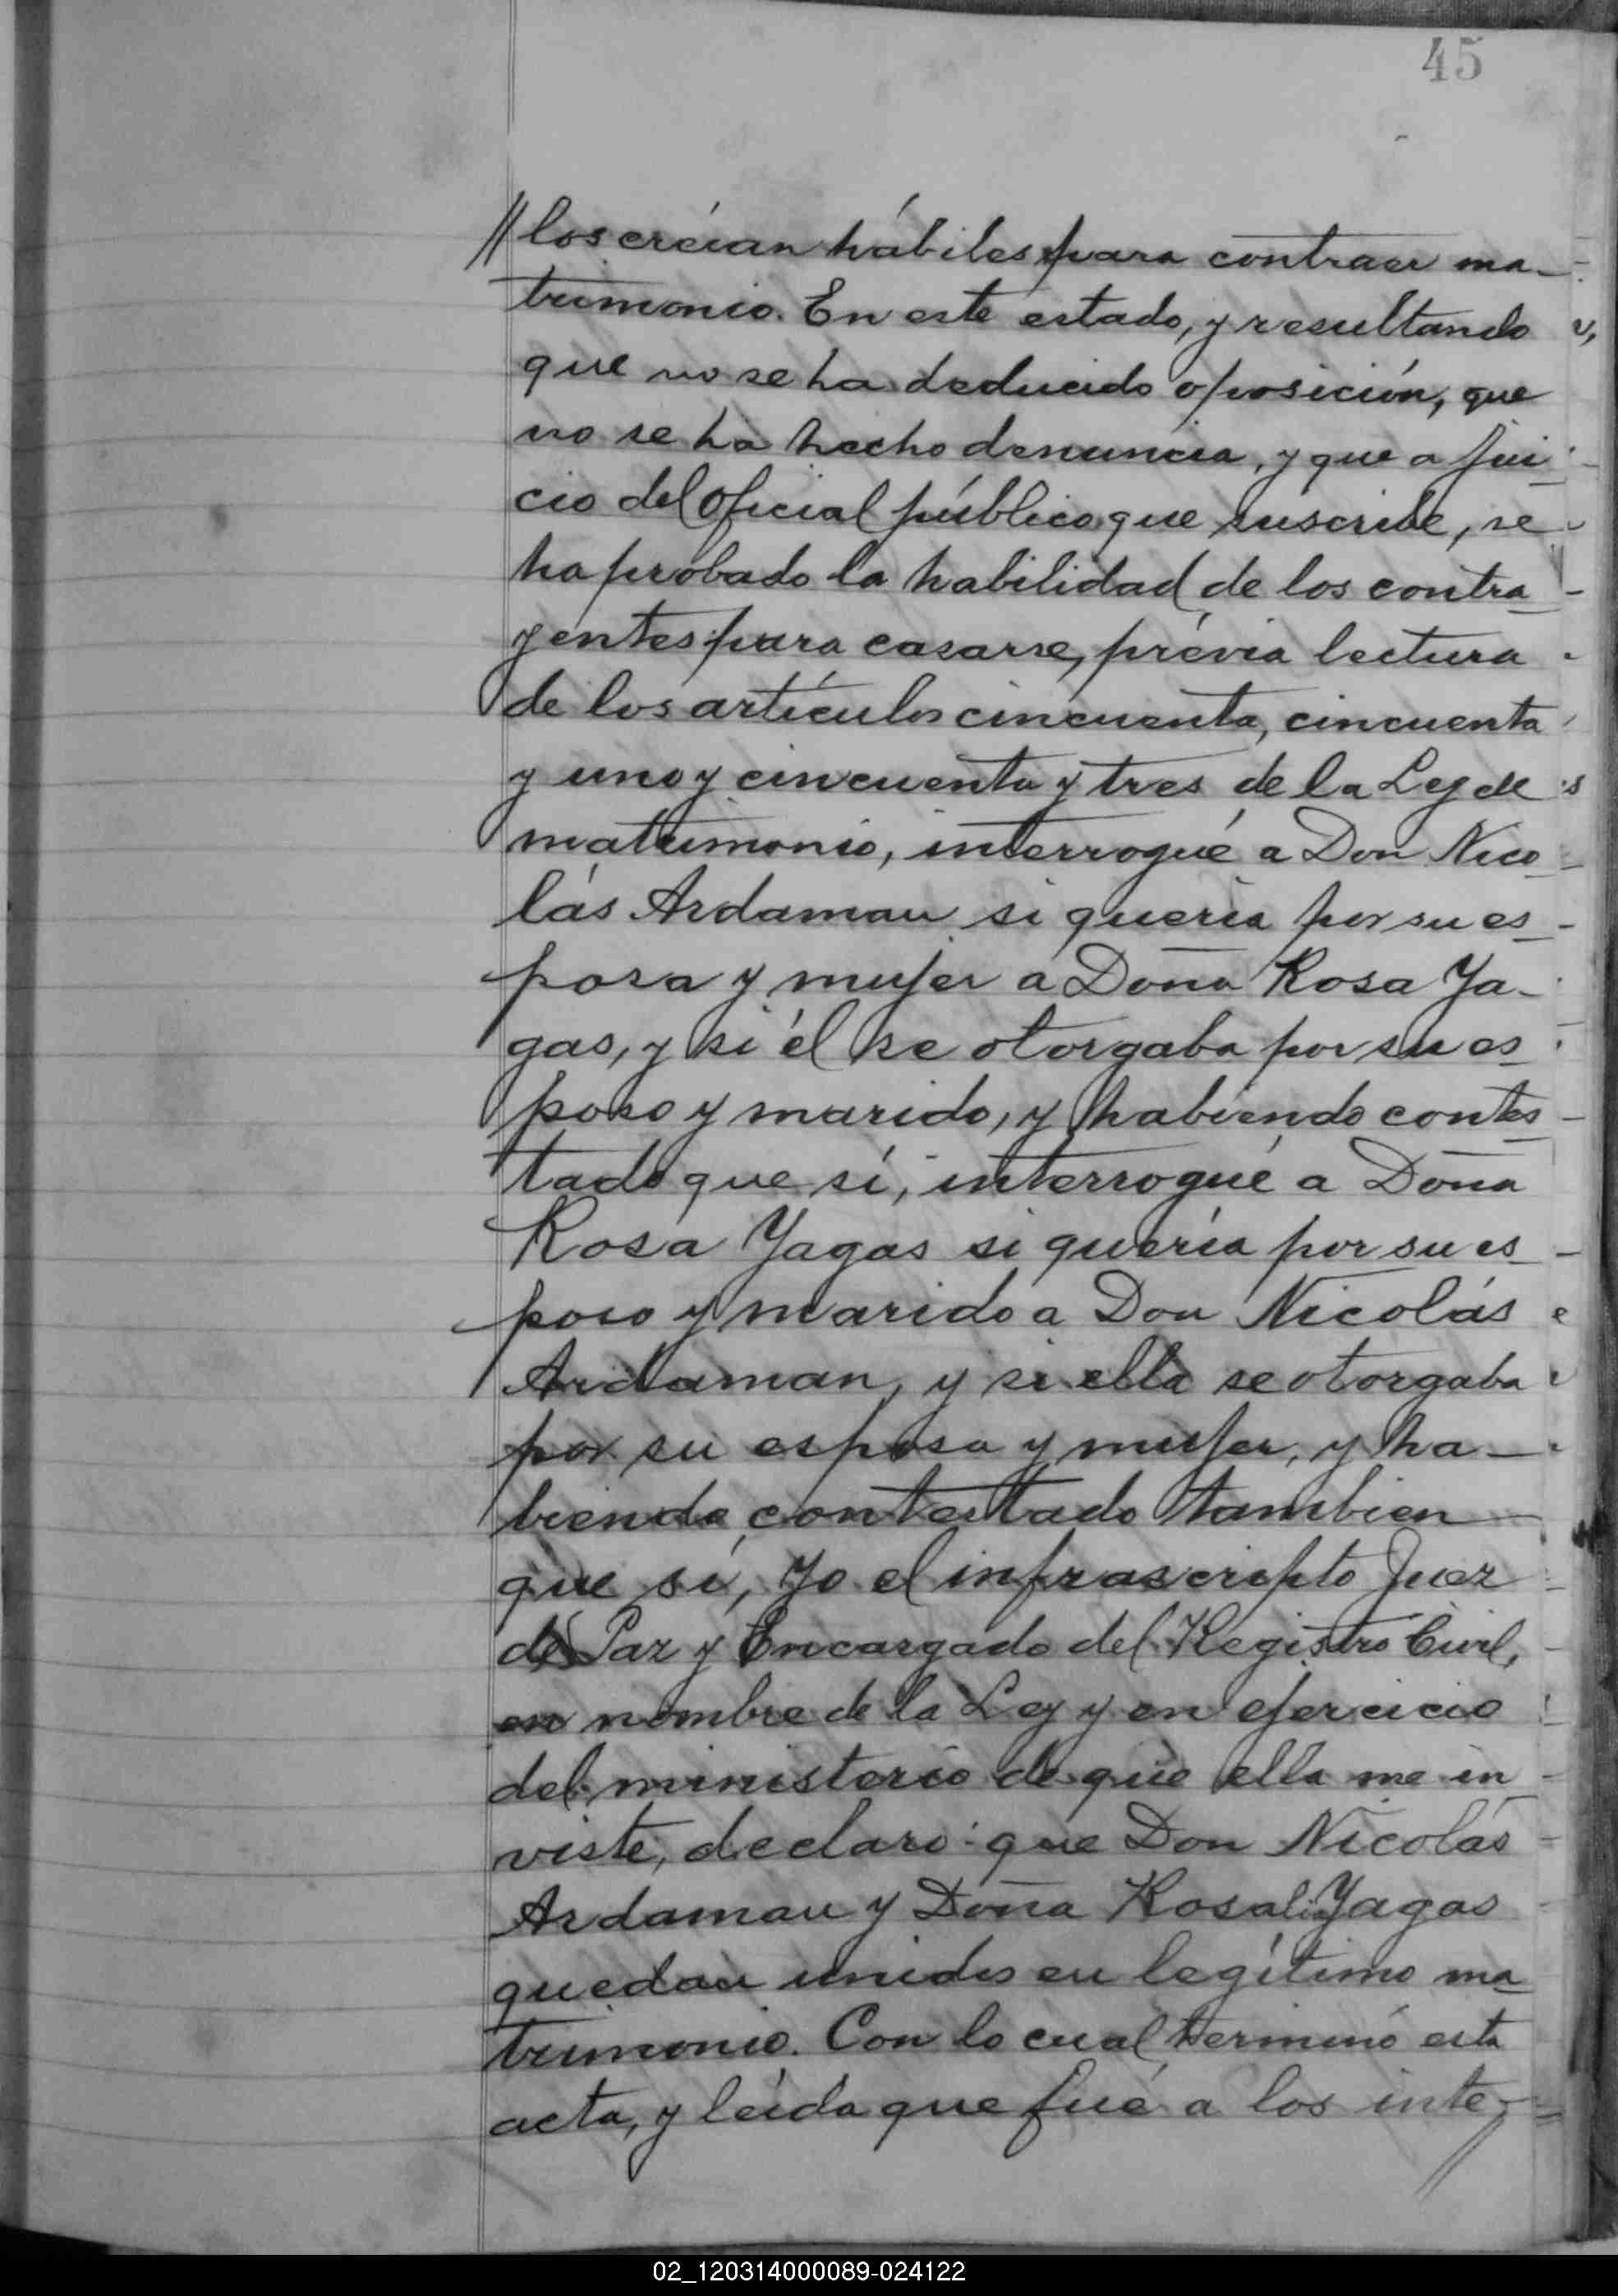 45
//los creían hábiles para contraer ma-
trimonio. En este estado, y resultando
que no se ha deducido oposición, que
no se ha hecho denuncia, y que a jui
cio del Oficial público que suscribe, se
ha probado la habilidad de los contra
yentes para casarse, prévia lectura
de los artículos cincuenta, cincuenta
y uno y cincuenta y tres de la Ley de
matrimonio, interrogué a Don Nico
lás Ardaman si quería por su es
posa y mujer a Doña Rosa Ya-
gas, y si él se otorgaba por su es
poso y marido, y habiendo contes
tado que sí, interrogué a Doña
Rosa Yagas si quería por su es
poso y marido a Don Nicolás
Ardaman, y si ella se otorgaba
por su esposa y mujer, y ha-
biendo contestado tambien
que sí, Yo el infrascripto Juez
de Paz y Encargado del Registro Civil,
en nombre de la Ley y en ejercicio
del ministerio de que ella me in
viste, declaro: que Don Nicolás
Ardaman y Doña Rosalía Yagas
quedan unidos en legítimo ma
trimonio. Con lo cual terminó esta
acta, y leída que fué a los inte-//
02_120314000089-024122